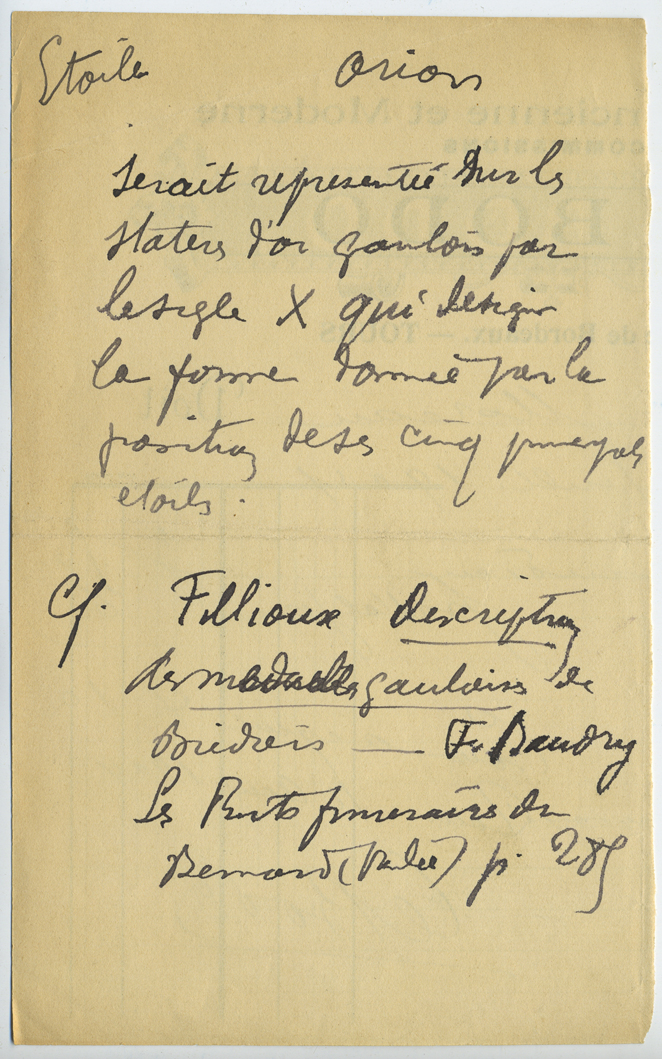 Etoile Orion
Serait representée sur les
Staters d'or gaulois par
le sigle X qui désigne
la forme donnée par la
position de ses cinq principales
etoiles.
Cf. Fillioux Description
des medailles gauloises de
— F. Baudry
Les Puits funeraires du
Bernard (Vendée) p. 285
ncienne et Moderne
BODO
de Bordeaux. — TOURS